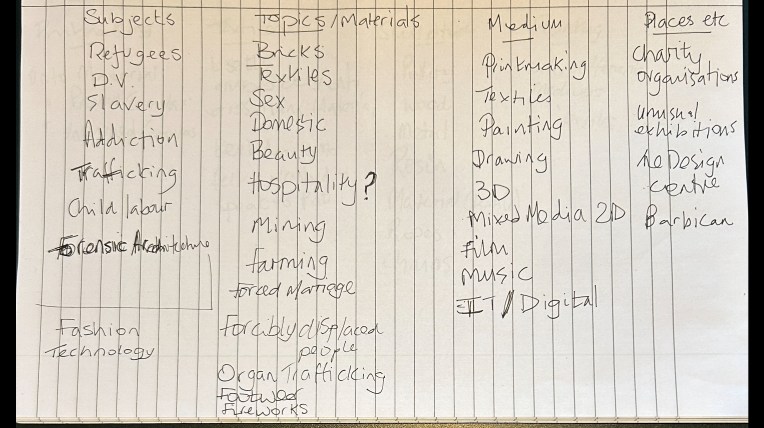 Subjects
Refugees
D.V.
Slavery
Addiction
Trafficking
Child labour
Forensic Architecture
Fashion
Technology
Topics/Materials
Bricks
Textiles
Sex
Domestic
Beauty
Hospitality?
Mining
Farming
Forced Marriage
Forcibly displaced
people
Organ Trafficking
Footwear
Fireworks
Medium
Printmaking
Textiles
Painting
Drawing
3D
Mixed Media 2D
Film
Music
IT/Digital
Places etc
Charity
organisations
unusual
exhibitions
Design
Centre
Barbican